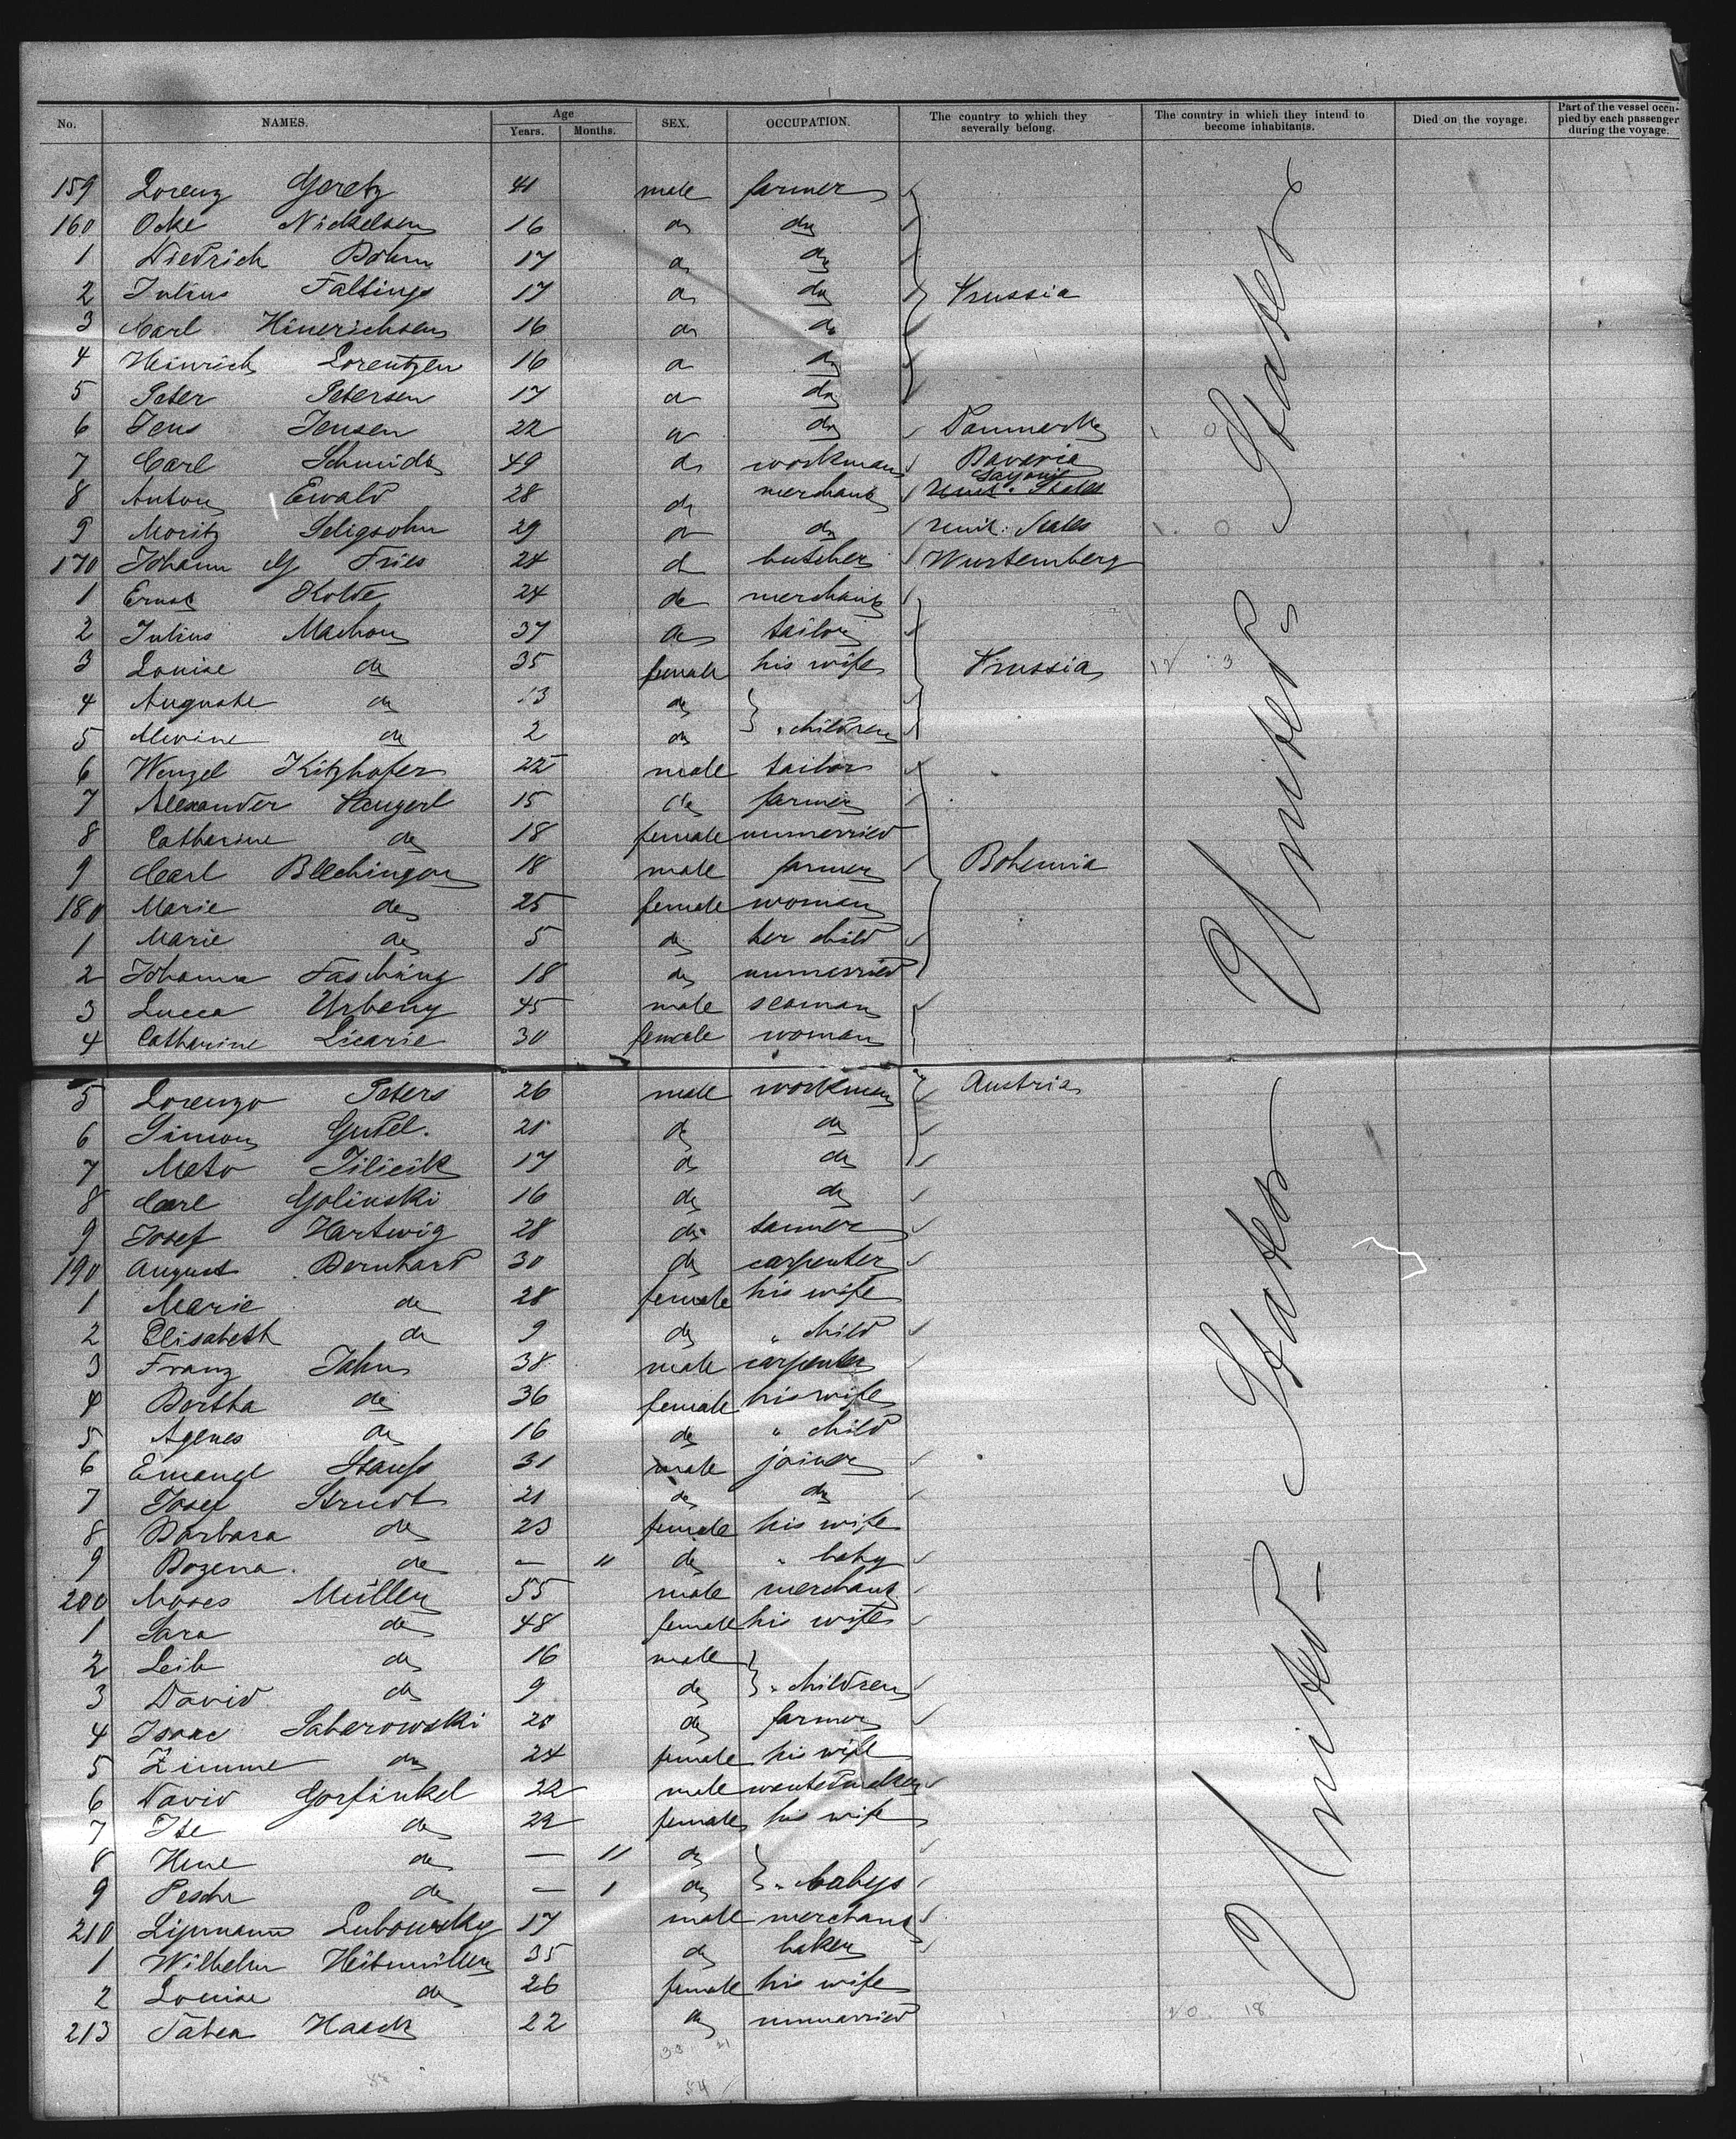 No. NAMES. Age Years. Months. SEX. OCCUPATION. The country to which they severally belong. The country in which they intend to become inhabitants. Died on the voyage. Part of the vessel occupied by each passenger during the voyage.
159 Lorenz Goretz 41 male farmer
160 Ocke Nickelsen 16 do do
1 Diedrich Bohm 17 do do
2 Julius Faltings 17 do do Prussia
3 Carl Hinerichsen 16 do do
4 Heinrich Lorentzen 16 do do
5 Peter Petersen 17 do do
6 Jens Jensen 22 do do Danmark
7 Carl Schmidt 49 do workman Bavaria
8 Anton Ewald 28 do merchant Unit. States
9 Moritz Seligsohn 29 do do Unit. States
170 Johann G Fries 24 do butcher Wurtemberg
1 Ernst Kolde 24 do merchant
2 Julius Machon 37 do tailor
3 Louise do 35 female his wife Prussia
4 Auguste do 13 do
5 Alwine do 2 do " children
6 Wenzel Kitzhofer 22 male tailor
7 Alexander 15 do farmer
8 Catharine do 18 female unmarried
9 Carl Blechinger 18 male farmer Bohemia
180 Marie do 25 female woman
1 Marie do 5 do her child
2 Johanna Fasching 18 do unmarried
3 Lucca Urbany 45 male seaman
4 Catharine Licarie 30 female woman
United States
5 Lorenzo Peters 26 male workman Austria
6 Simon Gudel. do do
7 Mato 17 do do
8 Carl Golinski 16 do do
9 Josef Hartwig 28 do tanner
190 August Bernhard 30 do carpenter
1 Marie do 28 female his wife
2 Elisabeth do 9 do " child
3 Franz Jahn 38 male carpenter
4 Bertha do 36 female his wife
5 Agnes do 16 do " child
6 Emanuel 31 male joiner
7 Josef 21 do do
8 Barbara do 23 female his wife
9 Bozena do — 11 do " baby
200 Moses Müller 55 male merchant
1 Sara do 48 female his wife
2 Leib do 16 male
3 David do 9 do " children
4 Isaac Saberowski do farmer
5 Zimme do 24 female his wife
6 David Gorfinkel 22 male
7 Ite do 22 female his wife
8 Hene do — 11 do
9 Pesche do — 1 do " babys
210 Lipmann Lubowsky 17 male merchant
1 Wilhelm Heitmüller 35 do baker
2 Louise do 26 female his wife
213 Tabea Haack 22 do unmarried
United States